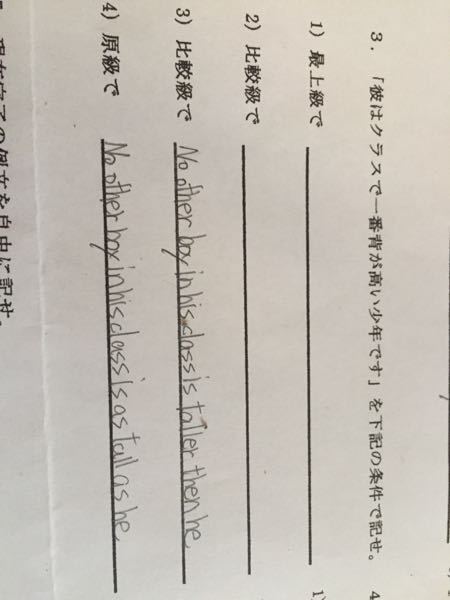 3. 「彼はクラスで一番背が高い少年です」を下記の条件で記せ。 4
1) 最上級で 1)
2) 比較級で
3) 比較級で No other boy in his class is taller then he.
4) 原級で No other boy in his class is as tall as he.
現在完了の例文を自由に記せ。